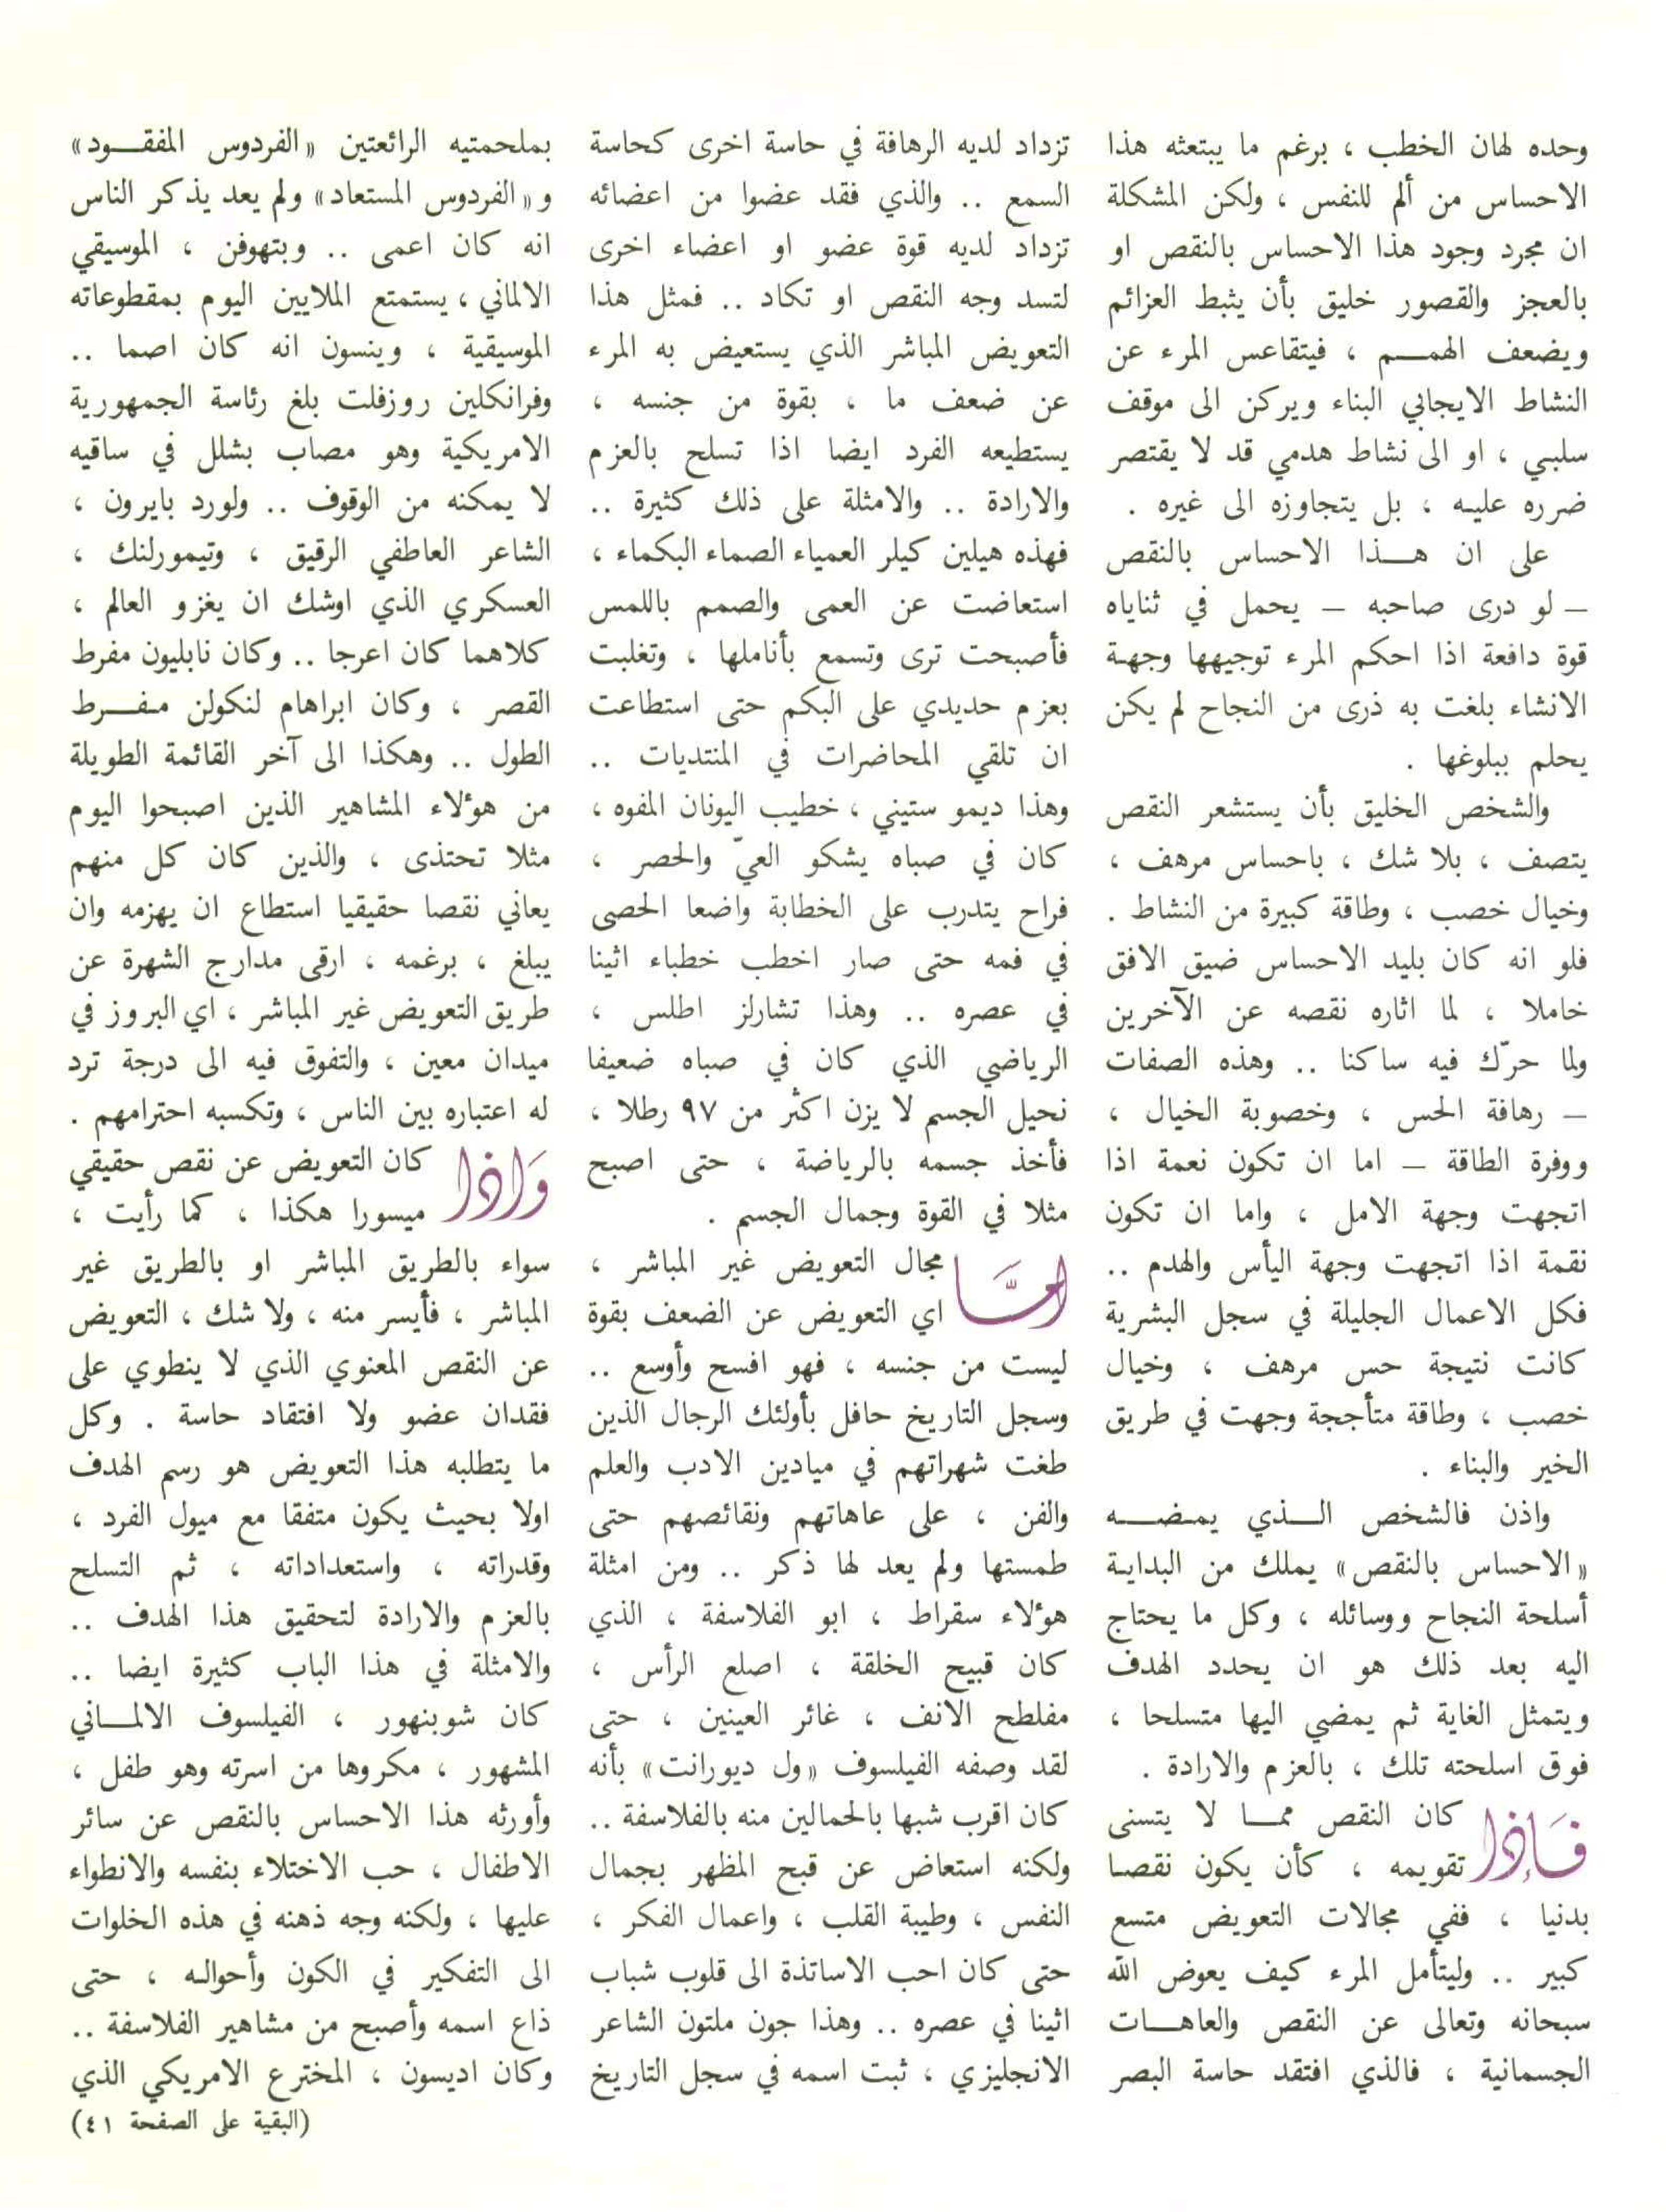 وحده لهان الخطب ، برغم ما يبتعثه هذا
الاحساس من ألم للنفس ، ولكن المشكلة
ان مجرد وجود هذا الاحساس بالنقص او
بالعجز والقصور خليق بأن يثبط العزائم
ويضعف الهمم ، فيتقاعس المرء عن
النشاط الايجابي البناء ويركن الى موقف
سلبي ، او الى نشاط هدمي قد لا يقتصر
ضرره عليه ، بل يتجاوزه الى غيره .
على ان هذا الاحساس بالنقص
– لو درى صاحبه – يحمل في ثناياه
قوة دافعة اذا احكم المرء توجيهها وجهة
الانشاء بلغت به ذرى من النجاح لم يكن
يحلم ببلوغها .
والشخص الخليق بأن يستشعر النقص
يتصف ، بلا شك ، باحساس مرهف ،
وخيال خصب ، وطاقة كبيرة من النشاط .
فلو انه كان بليد الاحساس ضيق الافق
خاملا ، لما اثاره نقصه عن الآخرين
ولما حرّك فيه ساكنا .. وهذه الصفات
– رهافة الحس ، وخصوبة الخيال ،
ووفرة الطاقة – اما ان تكون نعمة اذا
اتجهت وجهة الامل ، واما ان تكون
نقمة اذا اتجهت وجهة اليأس والهدم ..
فكل الاعمال الجليلة في سجل البشرية
كانت نتيجة حس مرهف ، وخيال
خصب ، وطاقة متأججة وجهت في طريق
الخير والبناء .
واذن فالشخص الذي يمضه
«الاحساس بالنقص» يملك من البداية
أسلحة النجاح ووسائله ، وكل ما يحتاج
اليه بعد ذلك هو ان يحدد الهدف
ويتمثل الغاية ثم يمضي اليها متسلحا ،
فوق اسلحته تلك ، بالعزم والارادة .
فَإذا كان النقص مما لا يتسنى
تقويمه ، كأن يكون نقصا
بدنيا ، ففي مجالات التعويض متسع
كبير .. وليتأمل المرء كيف يعوض الله
سبحانه وتعالى عن النقص والعاهات
الجسمانية ، فالذي افتقد حاسة البصر
تزداد لديه الرهافة في حاسة اخرى كحاسة
السمع .. والذي فقد عضوا من اعضائه
تزداد لديه قوة عضو او اعضاء اخرى
لتسد وجه النقص او تكاد .. فمثل هذا
التعويض المباشر الذي يستعيض به المرء
عن ضعف ما ، بقوة من جنسه ،
يستطيعه الفرد ايضا اذا تسلح بالعزم
والارادة .. والامثلة على ذلك كثيرة ..
فهذه هيلين كيلر العمياء الصماء البكماء ،
استعاضت عن العمى والصمم باللمس
فأصبحت ترى وتسمع بأناملها ، وتغلبت
بعزم حديدي على البكم حتى استطاعت
ان تلقي المحاضرات في المنتديات ..
وهذا ديمو ستيني ، خطيب اليونان المفوه ،
كان في صباه يشكو العيّ والحصر ،
فراح يتدرب على الخطابة واضعا الحصى
في فمه حتى صار اخطب خطباء اثينا
في عصره .. وهذا تشارلز اطلس ،
الرياضي الذي كان في صباه ضعيفا
نحيل الجسم لا يزن اكثر من ٩٧ رطلا ،
فأخذ جسمه بالرياضة ، حتى اصبح
مثلا في القوة وجمال الجسم .
امَّا مجال التعويض غير المباشر ،
اي التعويض عن الضعف بقوة
ليست من جنسه ، فهو افسح وأوسع ..
وسجل التاريخ حافل بأولئك الرجال الذين
طغت شهراتهم في ميادين الادب والعلم
والفن ، على عاهاتهم ونقائصهم حتى
طمستها ولم يعد لها ذكر .. ومن امثلة
هؤلاء سقراط ، ابو الفلاسفة ، الذي
كان قبيح الخلقة ، اصلع الرأس ،
مفلطح الانف ، غائر العينين ، حتى
لقد وصفه الفيلسوف «ول ديورانت» بأنه
كان اقرب شبها بالحمالين منه بالفلاسفة ..
ولكنه استعاض عن قبح المظهر بجمال
النفس ، وطيبة القلب ، واعمال الفكر ،
حتى كان احب الاساتذة الى قلوب شباب
اثينا في عصره .. وهذا جون ملتون الشاعر
الانجليزي ، ثبت اسمه في سجل التاريخ
بملحمتيه الرائعتين «الفردوس المفقود»
و«الفردوس المستعاد» ولم يعد يذكر الناس
انه كان اعمى .. وبتهوفن ، الموسيقي
الالماني ، يستمتع الملايين اليوم بمقطوعاته
الموسيقية ، وينسون انه كان اصما ..
وفرانكلين روزفلت بلغ رئاسة الجمهورية
الامريكية وهو مصاب بشلل في ساقيه
لا يمكنه من الوقوف .. ولورد بايرون ،
الشاعر العاطفي الرقيق ، وتيمورلنك ،
العسكري الذي اوشك ان يغزو العالم ،
كلاهما كان اعرجا .. وكان نابليون مفرط
القصر ، وكان ابراهام لنكولن مفرط
الطول .. وهكذا الى آخر القائمة الطويلة
من هؤلاء المشاهير الذين اصبحوا اليوم
مثلا تحتذى ، والذين كان كل منهم
يعاني نقصا حقيقيا استطاع ان يهزمه وان
يبلغ ، برغمه ، ارقى مدارج الشهرة عن
طريق التعويض غير المباشر ، اي البروز في
ميدان معين ، والتفوق فيه الى درجة ترد
له اعتباره بين الناس ، وتكسبه احترامهم .
وَاذا كان التعويض عن نقص حقيقي
ميسورا هكذا ، كما رأيت ،
سواء بالطريق المباشر او بالطريق غير
المباشر ، فأيسر منه ، ولا شك ، التعويض
عن النقص المعنوي الذي لا ينطوي على
فقدان عضو ولا افتقاد حاسة . وكل
ما يتطلبه هذا التعويض هو رسم الهدف
اولا بحيث يكون متفقا مع ميول الفرد ،
وقدراته ، واستعداداته ، ثم التسلح
بالعزم والارادة لتحقيق هذا الهدف ..
والامثلة في هذا الباب كثيرة ايضا ..
كان شوبنهور ، الفيلسوف الالماني
المشهور ، مكروها من اسرته وهو طفل ،
وأورثه هذا الاحساس بالنقص عن سائر
الاطفال ، حب الاختلاء بنفسه والانطواء
عليها ، ولكنه وجه ذهنه في هذه الخلوات
الى التفكير في الكون وأحواله ، حتى
ذاع اسمه وأصبح من مشاهير الفلاسفة ..
وكان اديسون ، المخترع الامريكي الذي
(البقية على الصفحة ٤١)